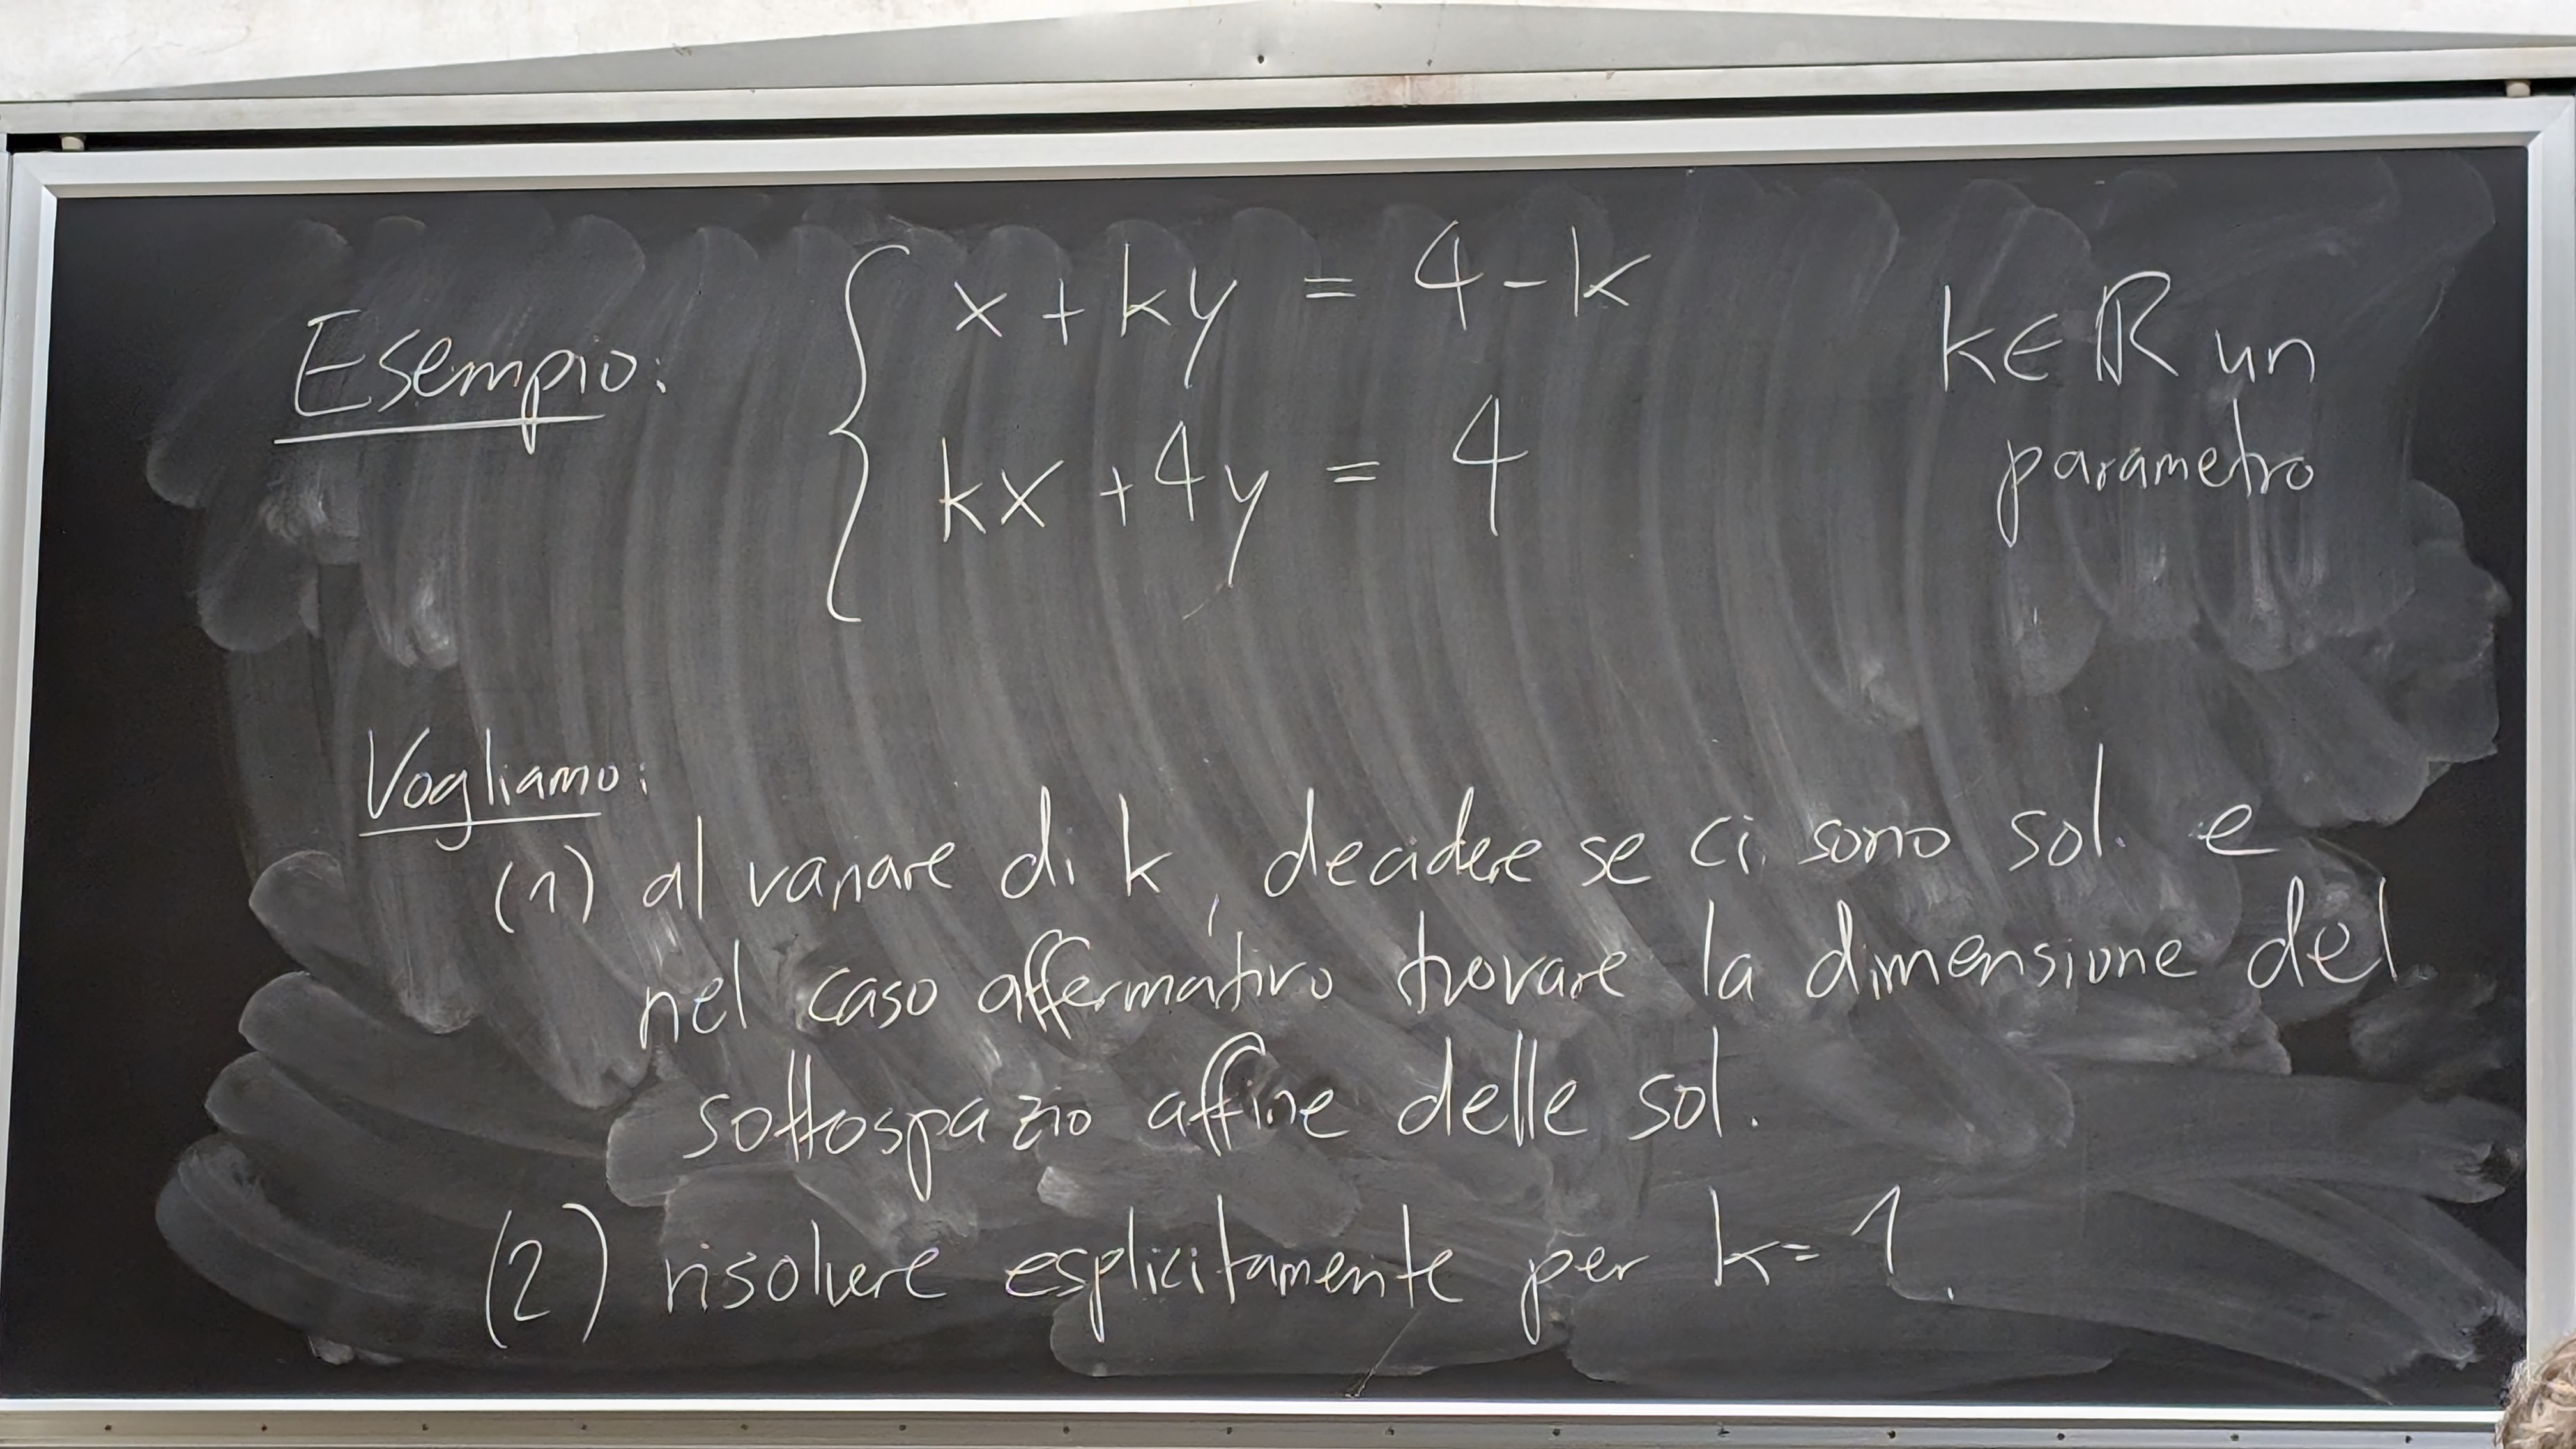 Esempio: { x + ky = 4 - k
kx + 4y = 4
k ∈ ℝ un
parametro
Vogliamo:
(1) al variare di k, decidere se ci sono sol. e
nel caso affermativo trovare la dimensione del
sottospazio affine delle sol.
(2) risolvere esplicitamente per k = 1.